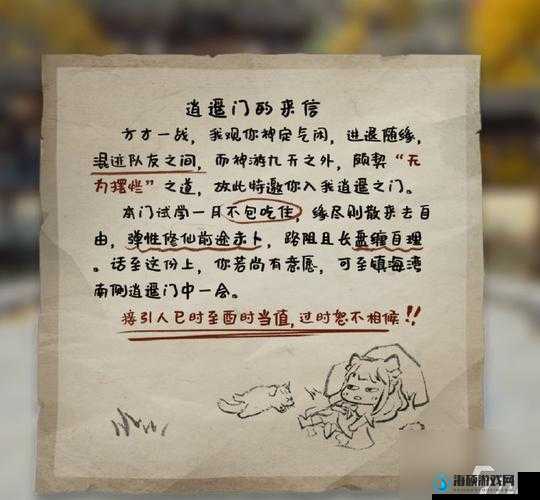 逍遥门的来信
方才一战，我观你神定气闲，进退随缘，
混迹队友之间，而神游九天之外，颇契“无
为摆烂”之道，故此特邀你入我逍遥之门。
本门试学一月不包吃住，缘尽则散来去自
由，弹性修仙前途未卜，路阻且长盘缠自理
。话至这份上，你若尚有意愿，可至镇海湾
南侧逍遥门中一会。
接引人巳时至酉时当值，过时恕不相候!!
海硕游戏网